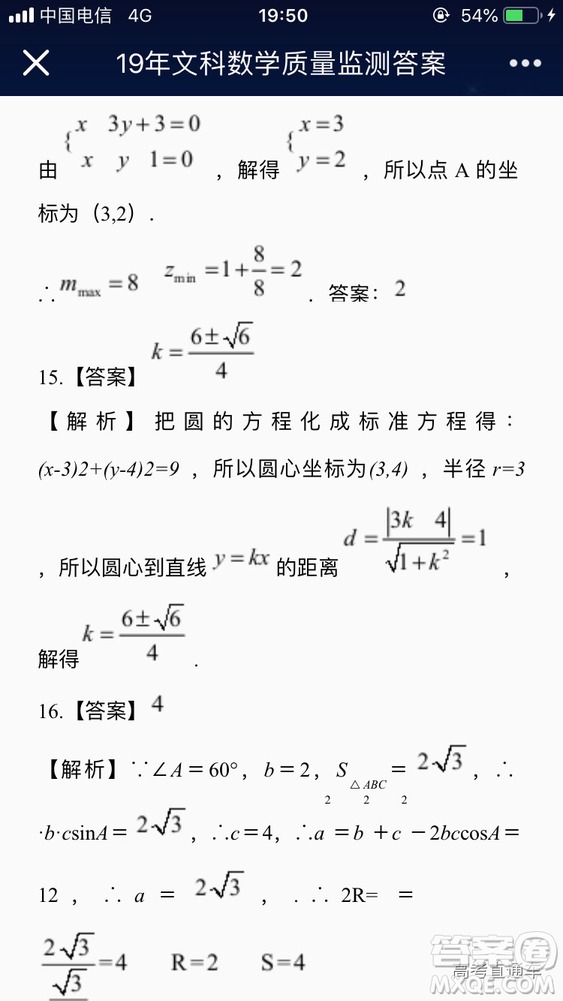 中国电信 4G 19:50 54%
19年文科数学质量监测答案
由 { x 3y+3=0 x y 1=0 ，解得 { x=3 y=2 ，所以点 A 的坐
标为（3,2）.
∴ m_max = 8 z_min = 1 + 8/8 = 2 . 答案：2
15.【答案】 k = (6±√6)/4
【解析】把圆的方程化成标准方程得：
(x-3)2+(y-4)2=9 ，所以圆心坐标为(3,4) ，半径 r=3
，所以圆心到直线 y = kx 的距离 d = |3k 4|/√(1+k²) = 1 ，
解得 k = (6±√6)/4 .
16.【答案】 4
【解析】∵∠A＝60°，b＝2，S△ABC＝ 2√3 ，∴
2 2 2
·b·csinA＝ 2√3 ，∴c＝4，∴a ＝b ＋c －2bccosA＝
12 ，∴ a ＝ 2√3 ，. ∴ 2R= ＝
2√3/√3 =4 R=2 S=4
答案圈
高考直通车
MXQE.COM